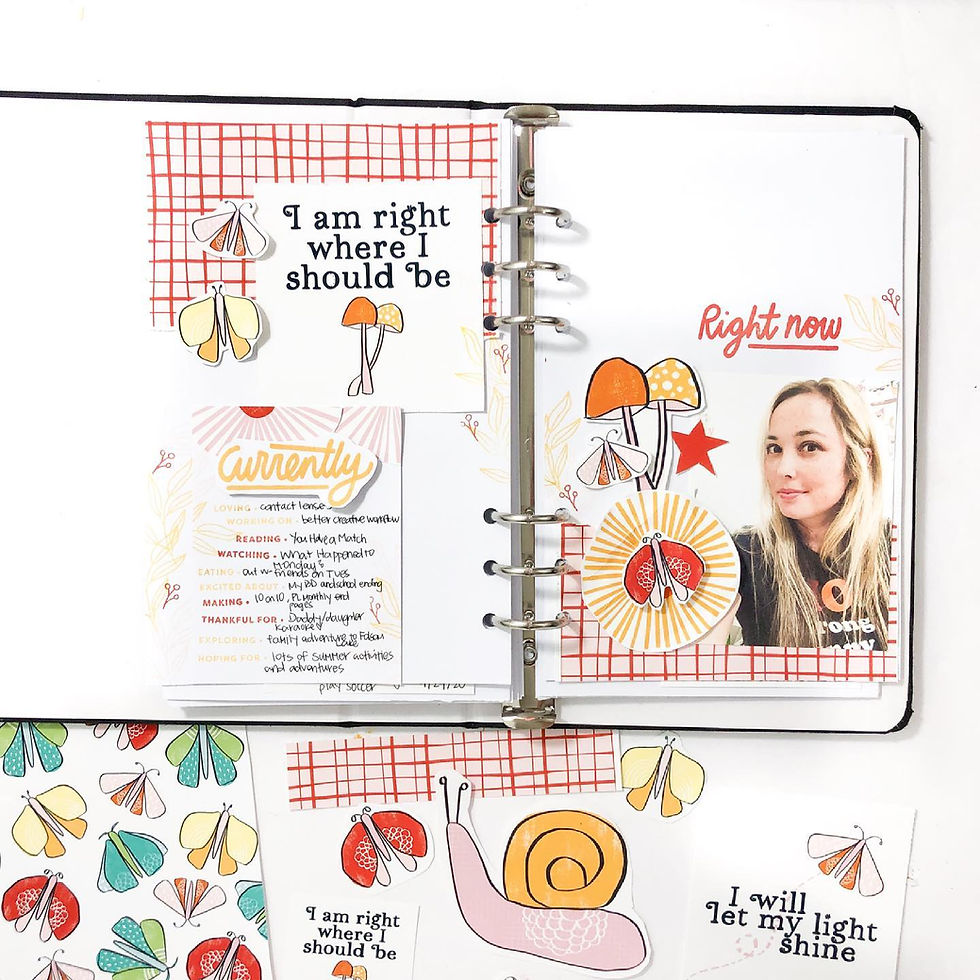 I am right
where I
should be
Currently
LOVING • contact lenses
WORKING ON • better creative workflow
READING • You Have a Match
WATCHING • What Happened to
Monday?
EATING • out w friends on Tues
EXCITED ABOUT • My BD and school ending
MAKING • 10 on 10, PL monthly and
pages
THANKFUL FOR • Daddy/daughter
karaoke
EXPLORING • family adventure to Folsom
Lake
HOPING FOR • lots of SUMMER activities
and adventures
play soccer
Right now
I am right
where I
should be
I will
let my light
shine